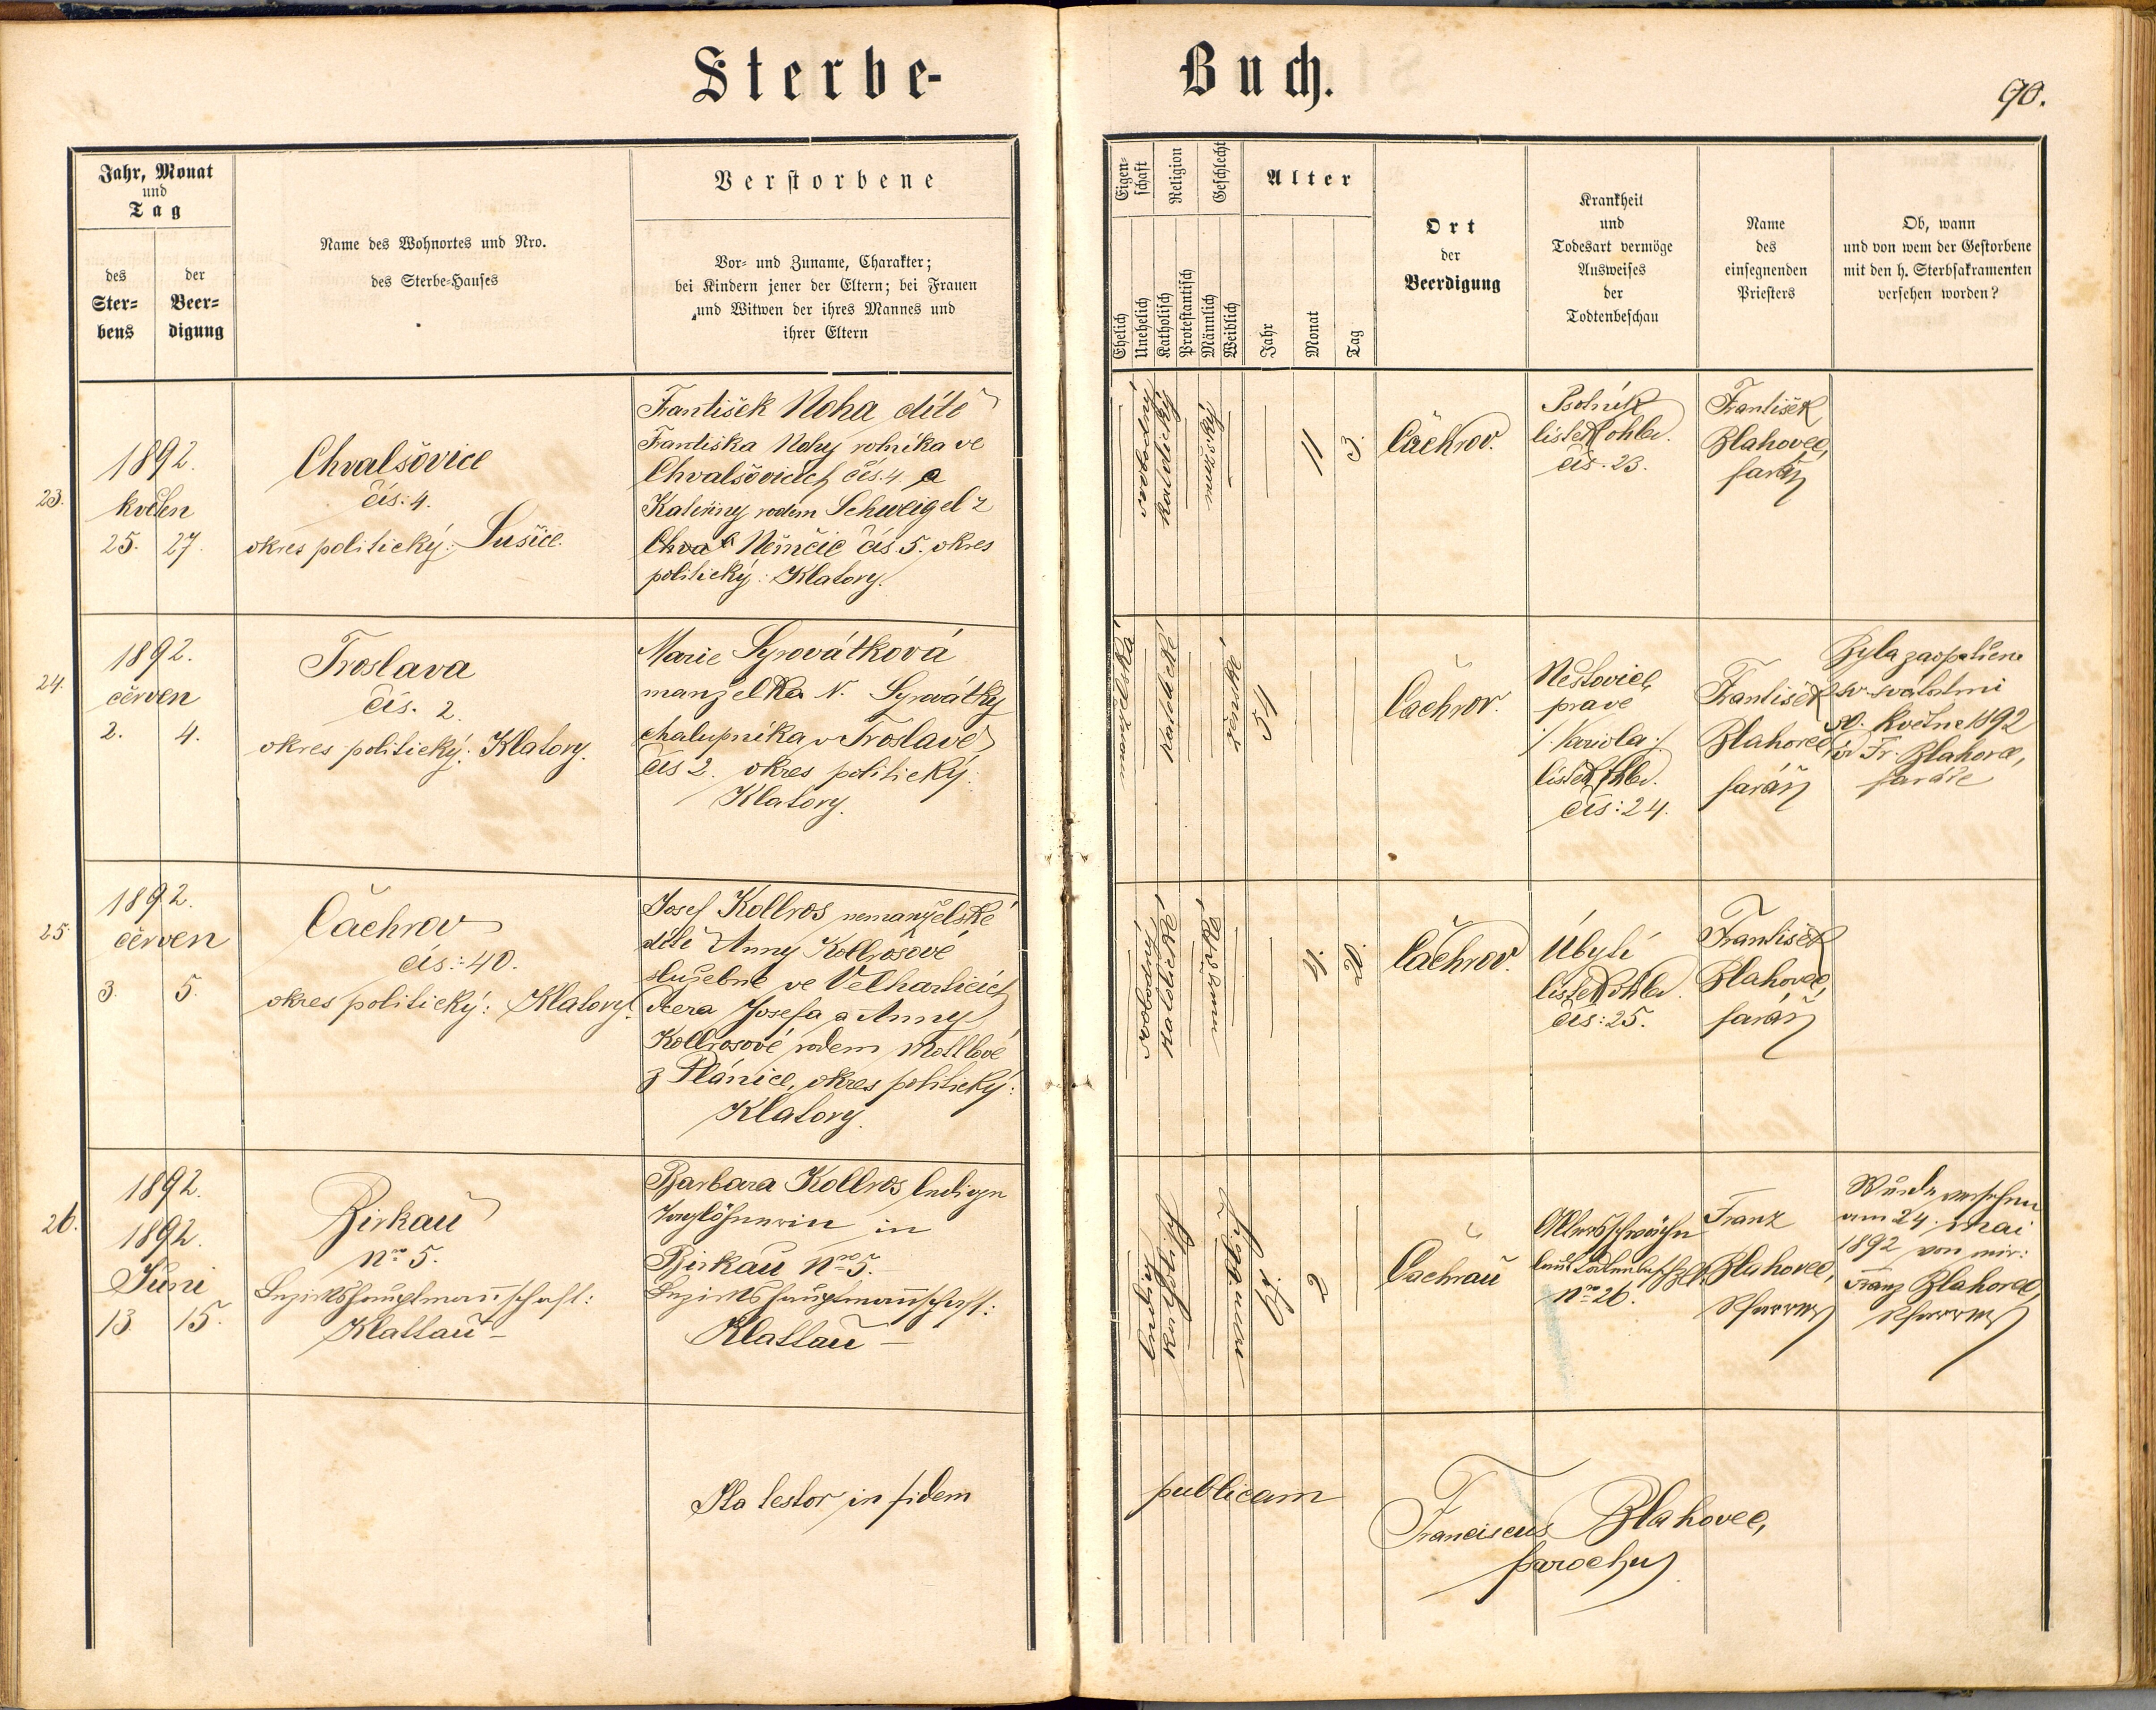 Sterbe-
Buch.
90.
Jahr, Monat
und
Tag
des
Ster-
bens
der
Beer-
digung
Name des Wohnortes und Nro.
des Sterbe-Hauses
Verstorbene
Vor- und Zuname, Charakter;
bei Kindern jener der Eltern; bei Frauen
und Witwen der ihres Mannes und
ihrer Eltern
Eigen-
schaft
Religion
Geschlecht
Ehelich
Unehelich
Katholisch
Protestantisch
Männlich
Weiblich
Alter
Jahr
Monat
Tag
Ort
der
Beerdigung
Krankheit
und
Todesart vermöge
Ausweises
der
Todtenbeschau
Name
des
einsegnenden
Priesters
Ob, wann
und von wem der Gestorbene
mit den h. Sterbsakramenten
versehen worden?
23.
1892.
květen
25. 27.
Chvalšovice
čís: 4.
okres politický: Sušice.
František Noha dítě
Františka Nohy rolníka ve
Chvalšovicích čís. 4 a
Kateřiny rodem Schweigel z
Chval Němčic čís 5. okres
politický: Klatovy.
svobodný
katolický
mužský
11
3.
Čachrov.
Psotník
lístek ohled.
čís. 23.
František
Blahovec,
farář
24.
1892.
červen
2. 4.
Troslava
čís. 2.
okres politický: Klatovy.
Marie Syrovátková
manželka N. Syrovátky
chalupníka v Troslavě
čís 2. okres politický:
Klatovy.
manželská
katolické
ženské
54
Čachrov.
Neštovice
pravé
/: Variola :/
lístek ohled.
čís: 24.
František
Blahovec
farář
Byla zaopatřena
sv. svátostmi
května 1892
od Fr. Blahovce,
faráře
25.
1892.
červen
3. 5.
Čachrov
čís: 40.
okres politický: Klatovy.
Josef Kollros nemanželské
dítě Anny Kollrosové
služebné ve Velharticích
dcera Josefa a Anny
Kollrosové rodem Mollové
z Plánice, okres politický:
Klatovy.
svobodný
katolické
mužské
4.
20.
Čachrov.
Úbytí
lístek ohled.
čís: 25.
František
Blahovec,
farář
26.
1892.
1892.
Juni
13. 15.
Birkau
Nro 5.
Bezirkshauptmannschaft:
Klattau –
Barbara Kollros, ledige
Taglöhnerin in
Birkau Nro 5.
Bezirkshauptmannschaft:
Klattau –
ledig
katholisch
2
Čachrau
Altersschwäche
laut
Nro 26.
Franz
Blahovec,
Pfarrer
Wurde versehen
am 24. Mai
1892 von mir:
Franz Blahovec,
Pfarrer
Ita testor in fidem
publicam
Franciscus Blahovec,
parochus